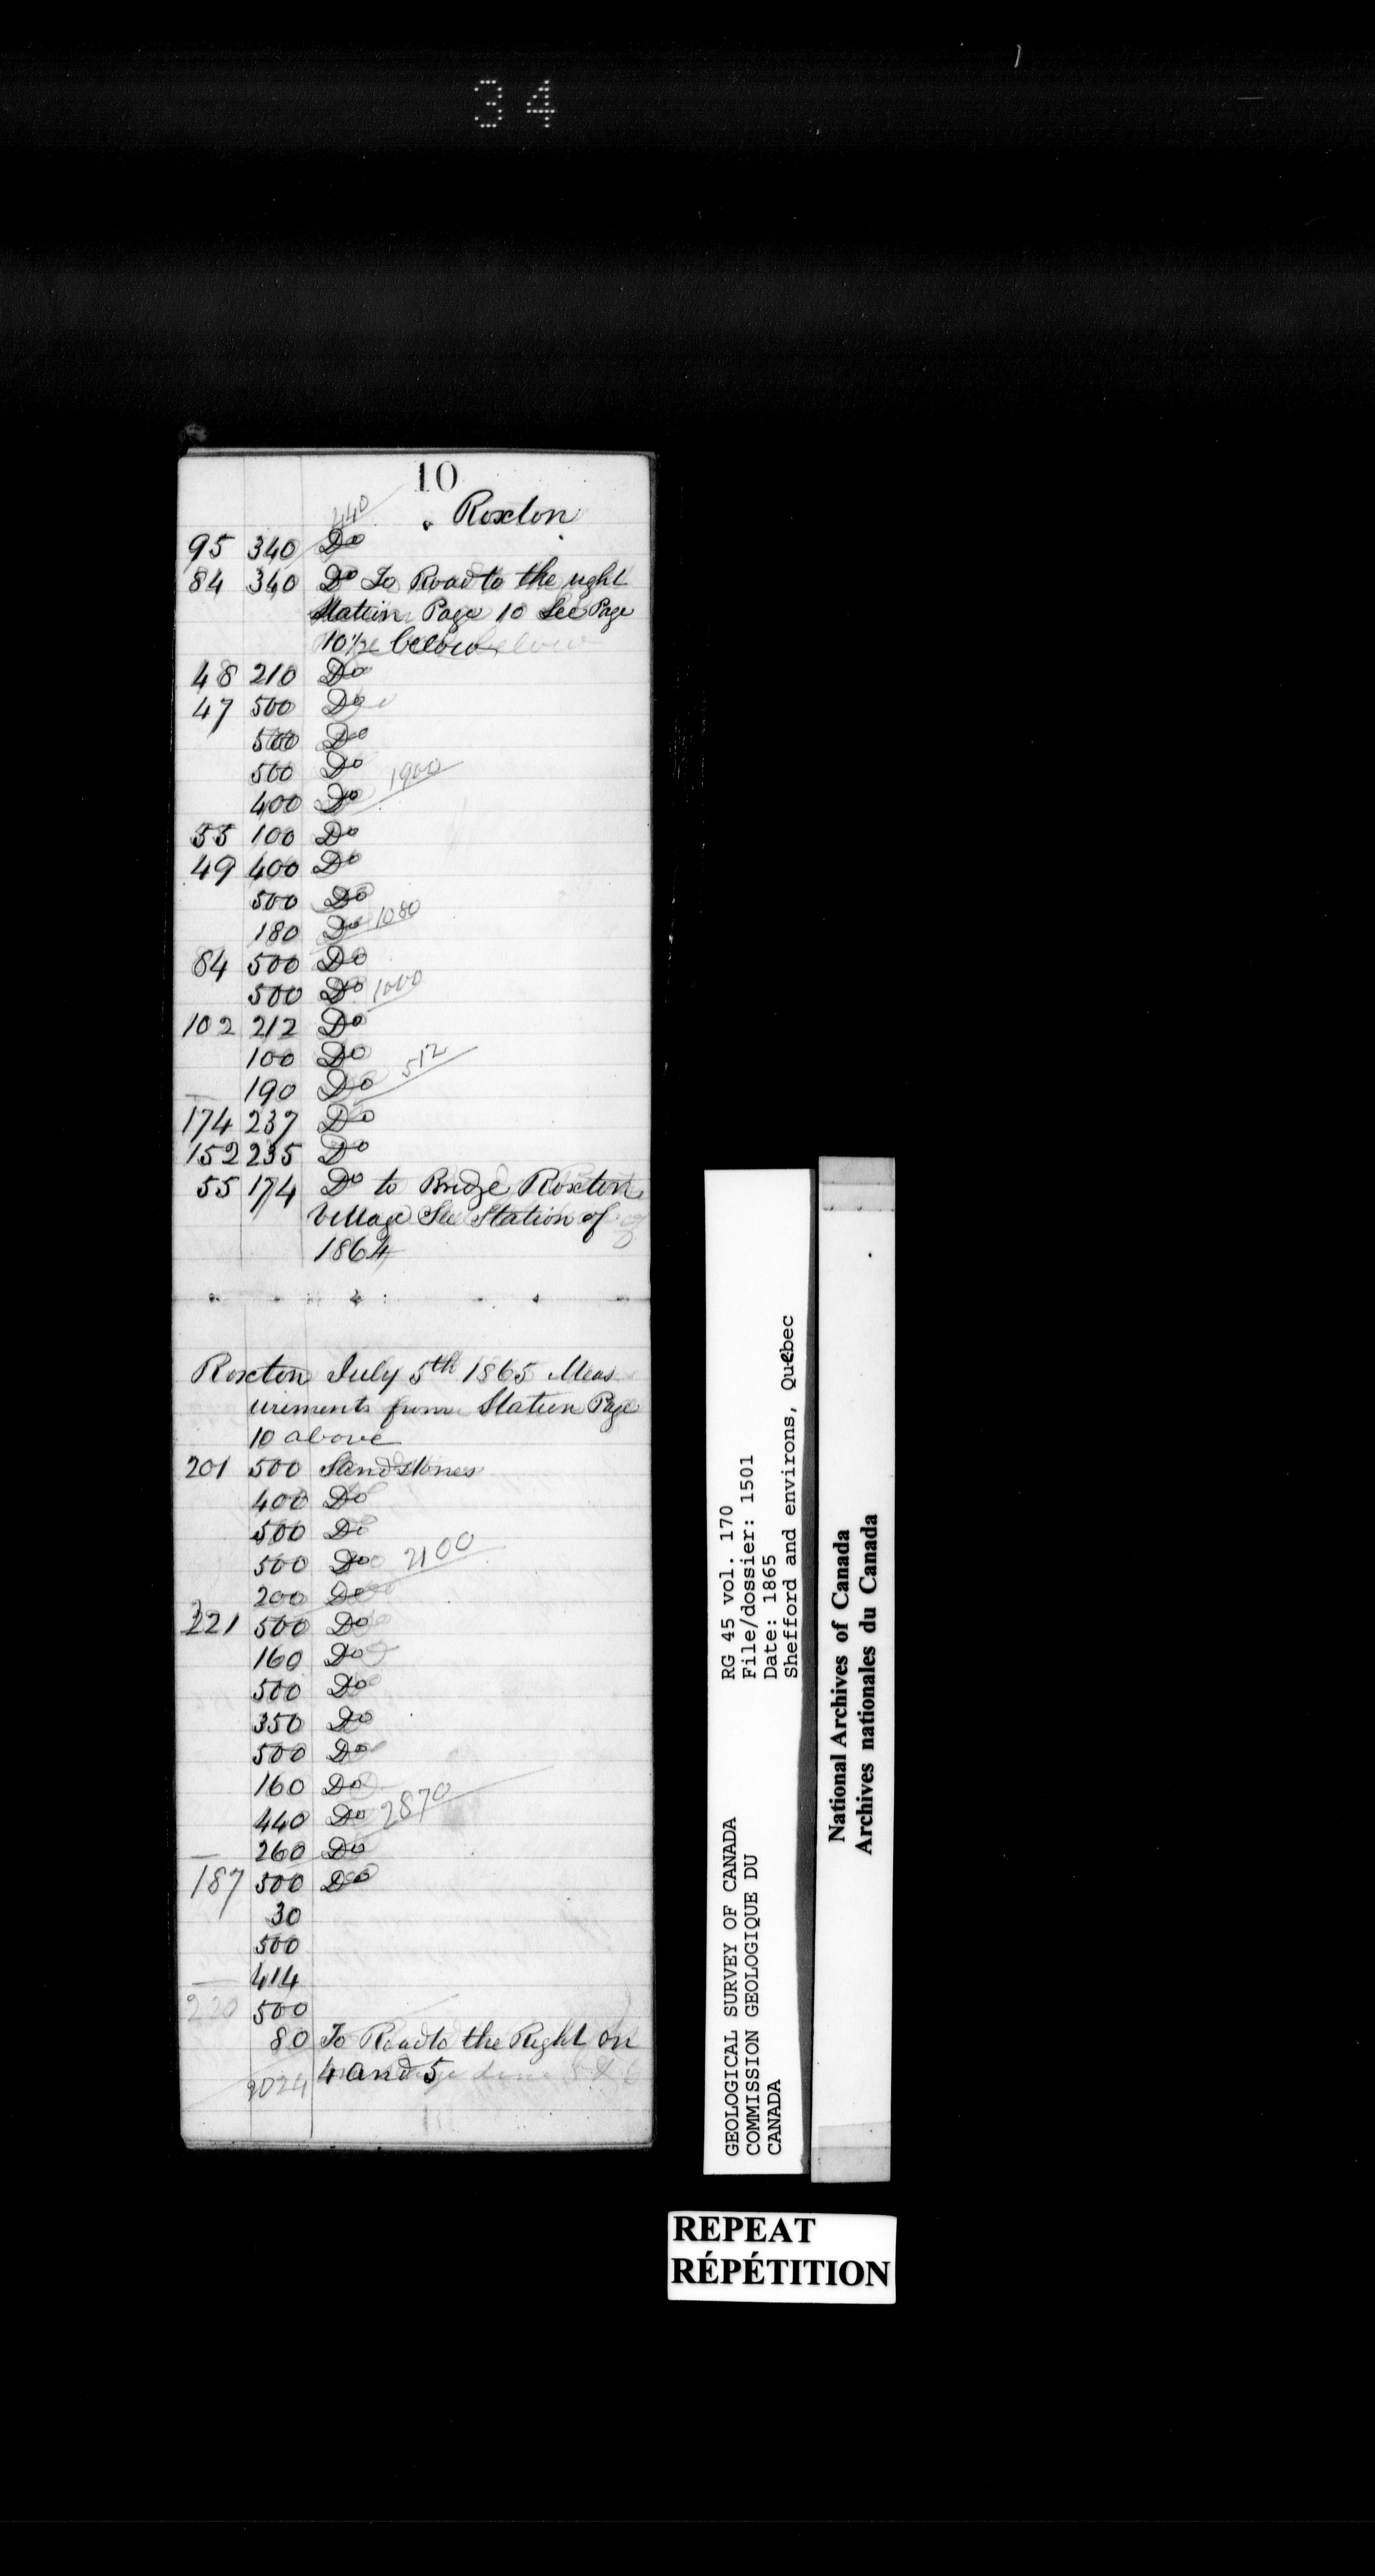 34
10
440
Roxton
95 340 Do
84 340 Do To Road to the right
Station Page 10 See Page
10 1/2 below
48 210 Do
47 500 Do
500 Do
500 Do 1900
400 Do
55 100 Do
49 400 Do
500 Do
180 Do 1080
84 500 Do
500 Do 1000
102 212 Do
100 Do 512
190 Do
174 237 Do
152 235 Do
55 174 Do to Bridge Roxton
Village See Station of
1864
Roxton July 5th 1865 Meas
urements from Station Page
10 above
201 500 Sandstones
400 Do
500 Do
500 Do 2100
200 Do
221 500 Do
160 Do
500 Do
350 Do
500 Do
160 Do
440 Do 2870
260 Do
187 500 Do
30
500
414
220 500
80 To Road to the Right on
2024 4 and 5
GEOLOGICAL SURVEY OF CANADA
COMMISSION GEOLOGIQUE DU
CANADA
RG 45 vol. 170
File/dossier: 1501
Date: 1865
Shefford and environs, Quebec
National Archives of Canada
Archives nationales du Canada
REPEAT
RÉPÉTITION